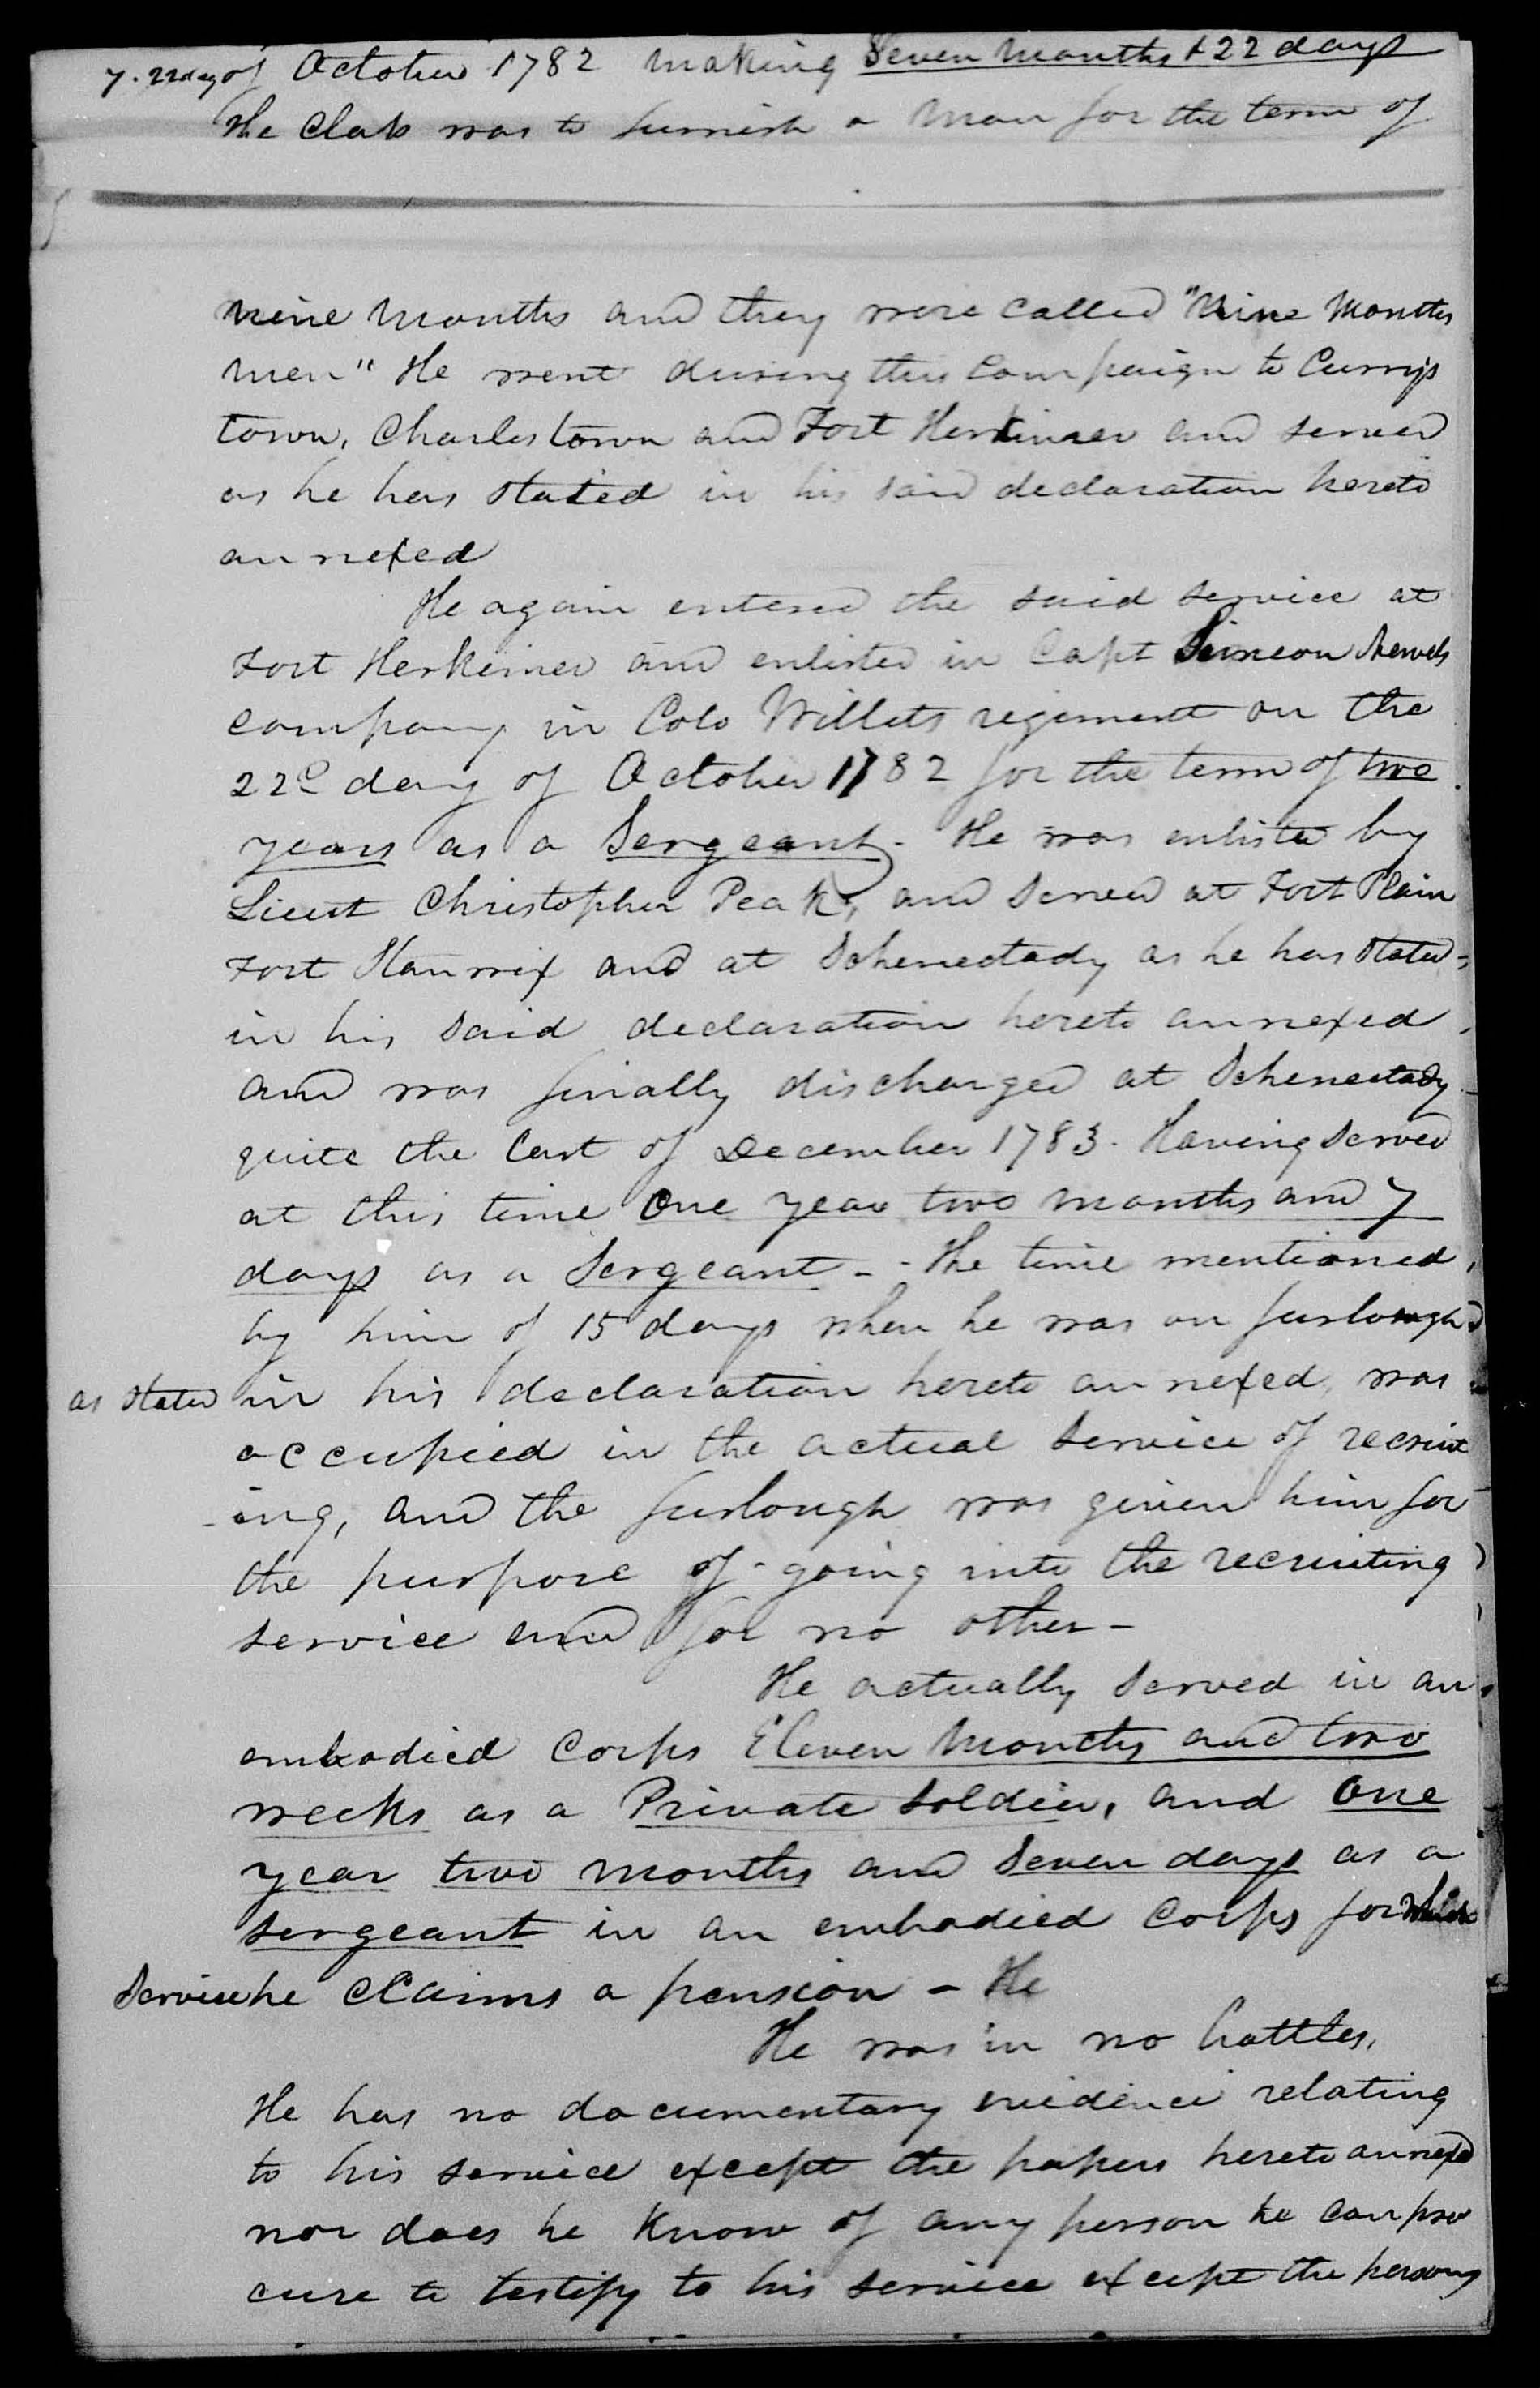 7. 22 day of October 1782 making Seven Months & 22 days
The Class was to furnish a Man for the term of
nine Months and they were called "Nine Months
Men" He went during this Campaign to Currys
town, Charlestown and Fort Herkimer and served
as he has stated in his said declaration hereto
annexed
He again entered the said service at
Fort Herkimer and enlisted in Capt Simeon Newels
company in Colo Willets regiment on the
22d day of October 1782 for the term of two
years as a Sergeant - He was enlisted by
Lieut Christopher Peak, and served at Fort Plain
Fort Stanwix and at Schenectady as he has stated
in his said declaration hereto annexed,
and was finally discharged at Schenectady
quite the last of December 1783. Having served
at this time One year two months and 7
days as a Sergeant - - The time mentioned
by him of 15 days when he was on furlough
as stated in his declaration hereto annexed, was
occupied in the actual service of recruit
-ing, and the furlough was given him for
the purpose of going into the recruiting
service and for no other -
He actually served in an
embodied Corps Eleven Months and two
weeks as a Private soldier, and One
year two months and Seven days as a
sergeant in an embodied Corps for which
Service he claims a pension - He
He was in no battles.
He has no documentary evidence relating
to his service except the papers hereto annexed
nor does he know of any person he can pro
cure to testify to his service except the persons